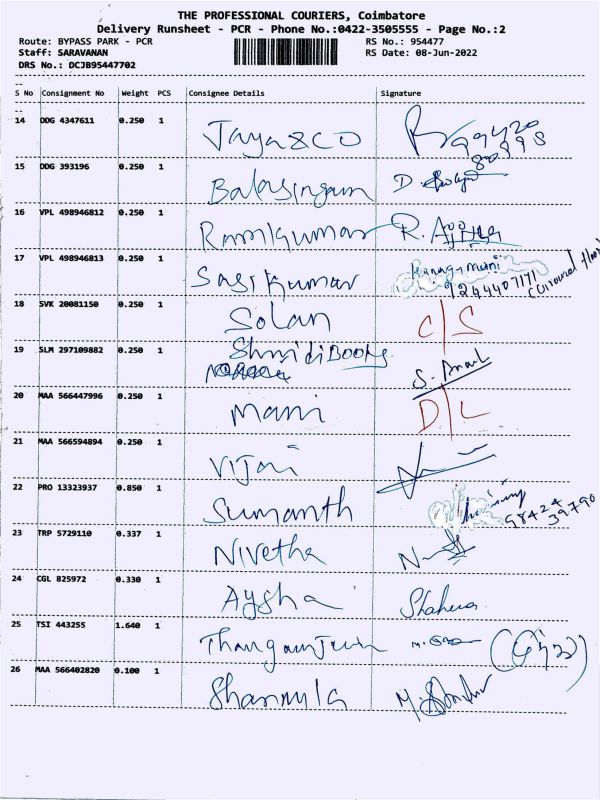 THE PROFESSIONAL COURIERS, Coimbatore
Delivery Runsheet - PCR - Phone No.:0422-3505555 - Page No.:2
Route: BYPASS PARK - PCR RS No.: 954477
Staff: SARAVANAN RS Date: 08-Jun-2022
DRS No.: DCJB95447702
S No Consignment No Weight PCS Consignee Details Signature
14 DDG 4347611 0.250 1 Jaya & CO
15 DDG 393196 0.250 1 Balasingam D.
16 VPL 498946812 0.250 1 Ramkumar R.
17 VPL 498946813 0.250 1 Sasikumar 9244407171
18 SVK 20081150 0.250 1 Solan C/S
19 SLM 297109882 0.250 1 Books S.
20 MAA 566447996 0.250 1 Mani D/L
21 MAA 566594894 0.250 1 Vijai
22 PRO 13323937 0.850 1 Sumanth 98424 39790
23 TRP 5729110 0.337 1 Nivetha
24 CGL 825972 0.330 1 Aysha
25 TSI 443255 1.640 1
26 MAA 566402820 0.100 1 Sharmila M.